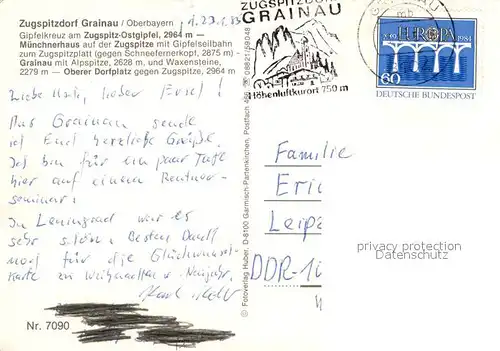 Zugspitzdorf Grainau / Oberbayern
Gipfelkreuz am Zugspitz-Ostgipfel, 2964 m —
Münchnerhaus auf der Zugspitze mit Gipfelseilbahn
zum Zugspitzplatt (gegen Schneefernerkopf, 2875 m) -
Grainau mit Alpspitze, 2628 m, und Waxensteine,
2279 m — Oberer Dorfplatz gegen Zugspitze, 2964 m
Liebe, lieber Erich!
Aus Grainau sende
ich Euch herzliche Grüße.
Ich bin für ein paar Tage
hier auf einem Rentner-
seminar!
In Leningrad war es
sehr schön. Besten Dank
noch für die Glückwunsch-
karte zu Weihnachten u. Neujahr.
Nr. 7090
© Fotoverlag Huber, D-8100 Garmisch-Partenkirchen, Postfach 08821/59048
ZUGSPITZDORF
GRAINAU
Höhenluftkurort 750 m
EUROPA
1984
60
DEUTSCHE BUNDESPOST
Familie
Eric
Leipz
DDR-10
privacy protection
Datenschutz